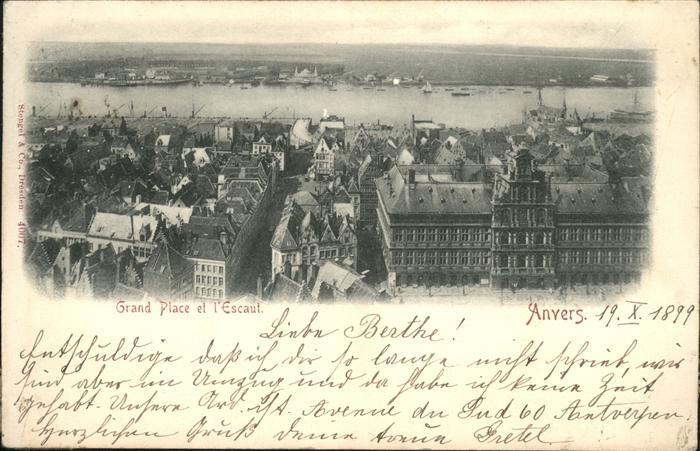 Stengel & Co., Dresden 4007.
Grand Place et l'Escaut.
Anvers. 19. X. 1899
Liebe Berthe!
Entschuldige daß ich dir so lange nicht schrieb, wir
sind aber im Umzug und da habe ich keine Zeit
gehabt. Unsere Adr. ist. Avenue du Sud 60 Antwerpen.
Herzlichen Gruß deine treue Gretel.